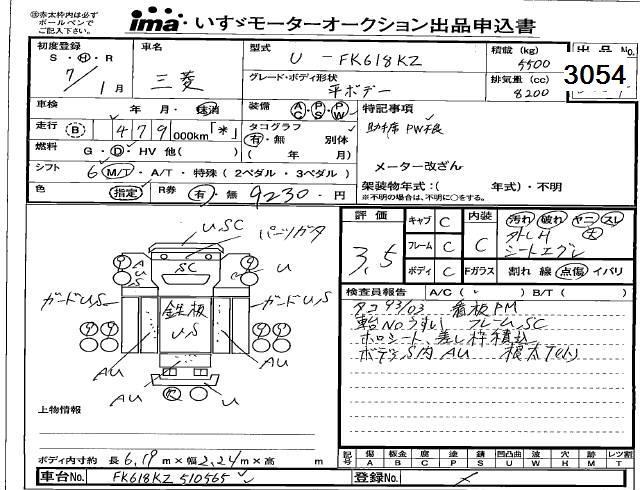 ㊟赤太枠内は必ず
ボールペンで
ご記入下さい。
ima いすゞモーターオークション出品申込書
初度登録
S・H・R
7/1月
車名
三菱
型式
U-FK618KZ
積載 (kg)
5500
出品No.
3054
グレード・ボディ形状
平ボデー
排気量 (cc)
8200
車検
年 月・抹消
装備 AC PS PW
特記事項
助手席 PW不良
走行 B 479,000km「*」
タコグラフ
有・無 別体
( 年 月)
燃料
G・D・HV 他( )
シフト
6 M/T・A/T・特殊(2ペダル・3ペダル)
メーター改ざん
色
指定
R券
有・無
9230-円
架装物年式:( 年式)・不明
※不明の場合は、不明に○をする。
評価
3.5
キャブ C
フレーム C
ボディ C
内装
C
Fガラス
汚れ 破れ ヤニ スレ
シートエグレ
割れ 線 点傷 イバリ
U,SC
パーツガタ
A
U
SC
U
ガードU,S
鉄板
U,S
ガードU,S
AU
AU
U
検査員報告 A/C( ) B/T( )
タコ 93/03 看板PM
車台Noうすい フレーム,SC
ホロシート、差し枠積込
ボデーS内AU 根太T(小)
上物情報
ボディ内寸約 長6.19m×幅2.24m×高 m
記号
傷 A
板金 B
腐 C
塗 P
錆 S
凹凸曲 U
波 W
穴 H
跡 M
レツ割 T
車台No.
FK618KZ 510565
登録No.